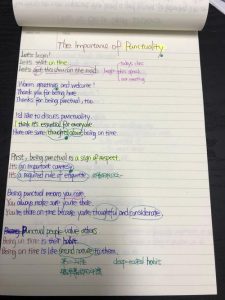 The Importance of Punctuality
Let's begin!
Let's start on time.
Let's get this show on the road.
Warm greetings and welcome!
Thank you for being here.
Thanks for being punctual, too.
I'd like to discuss punctuality.
I think it's essential for everyone
Here are some thoughts about being on time.
First, being punctual is a sign of respect.
It's an important courtesy.
It's a required rule of etiquette.
Being punctual means you care.
You always make sure you're there.
You're there on time because you're thoughtful and considerate.
Punctual people value others.
Being on time is their habit.
Being on time is like second nature to them.
deep-rooted habits